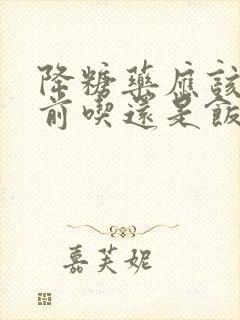 降糖藥應該
前喫還是飯
嘉芙妮